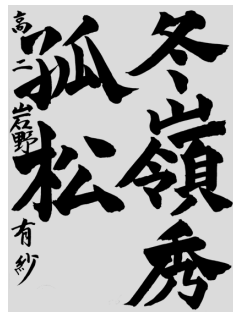 冬嶺秀
孤松
高二 岩野有紗